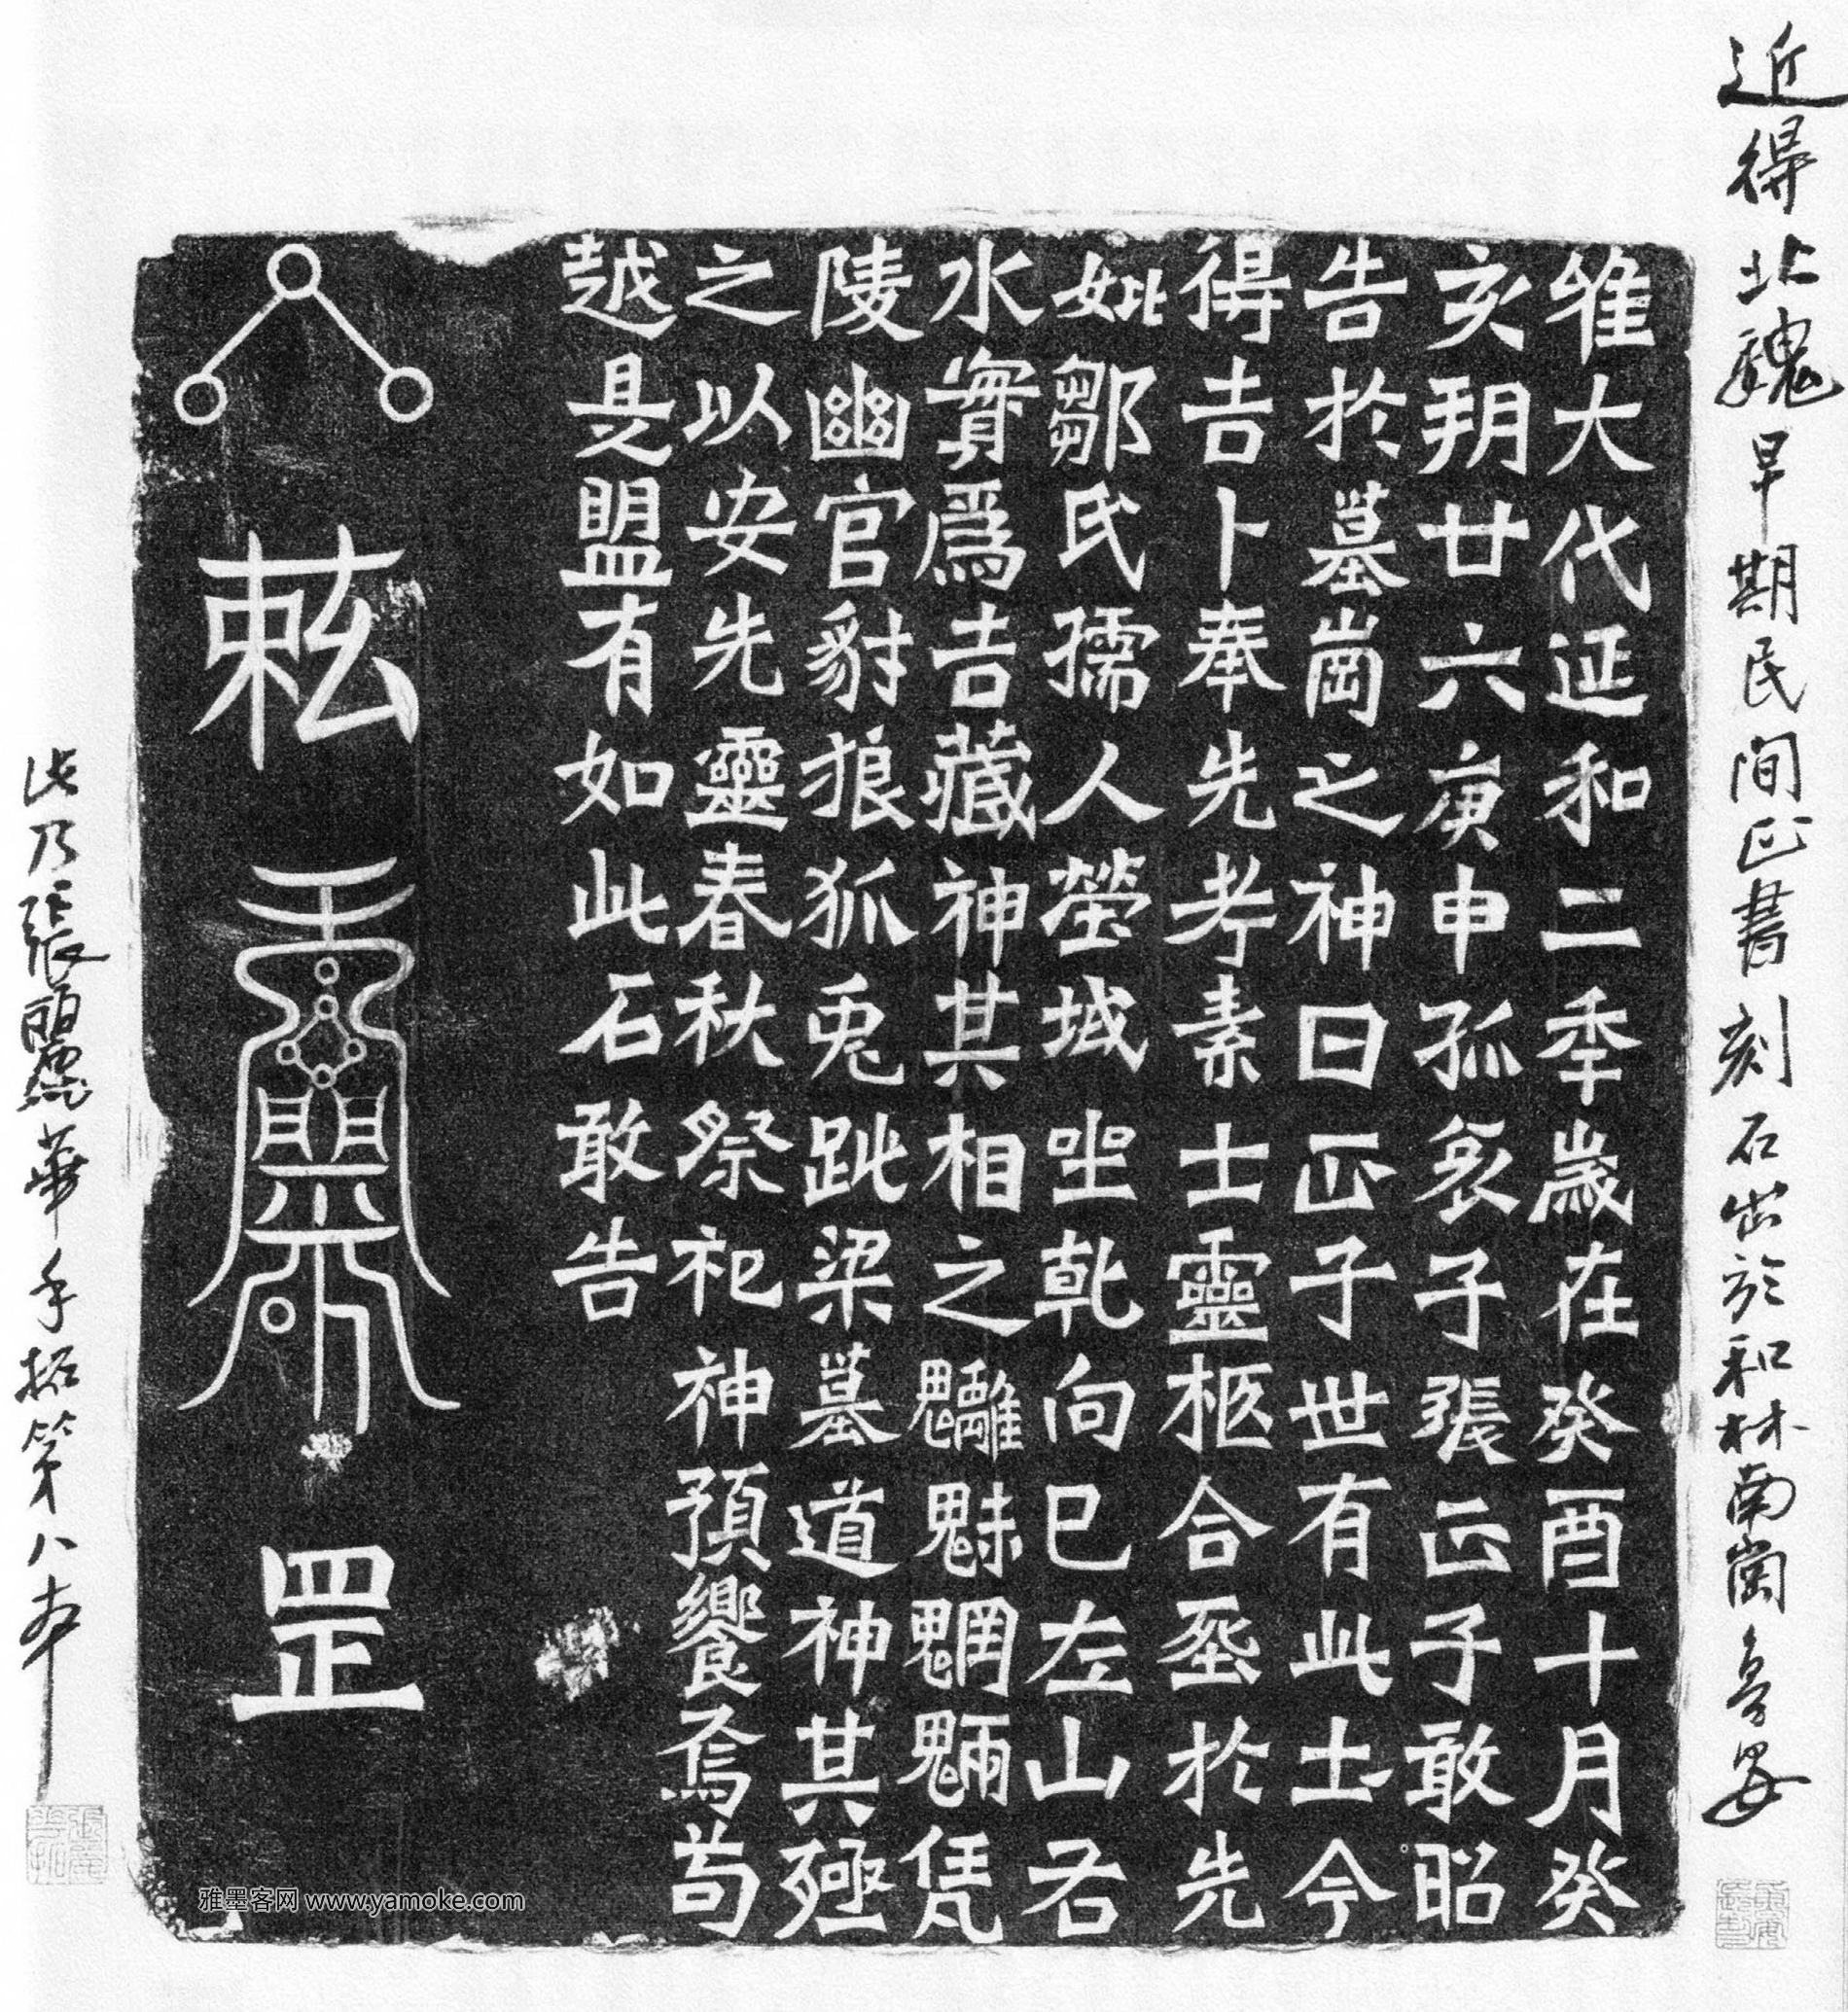 近得北魏早期民間正書刻石出於和林南崗
惟大代延和二秊歲在癸酉十月癸
亥朔廿六庚申孤哀子張正子敢昭
告於墓崗之神曰正子世有此土今
得吉卜奉先考素士靈柩合於先
妣鄒氏孺人塋域坐乾向巳左山右
水實爲吉藏神其相之魑魅魍魎凭
陵幽宮豺狼狐兔跳梁墓道神其殛
之以安先靈春秋祭祀神預饗焉苟
越是盟有如此石敢告
敕
罡
此乃張麗華手拓第八本
雅墨客网 www.yamoke.com